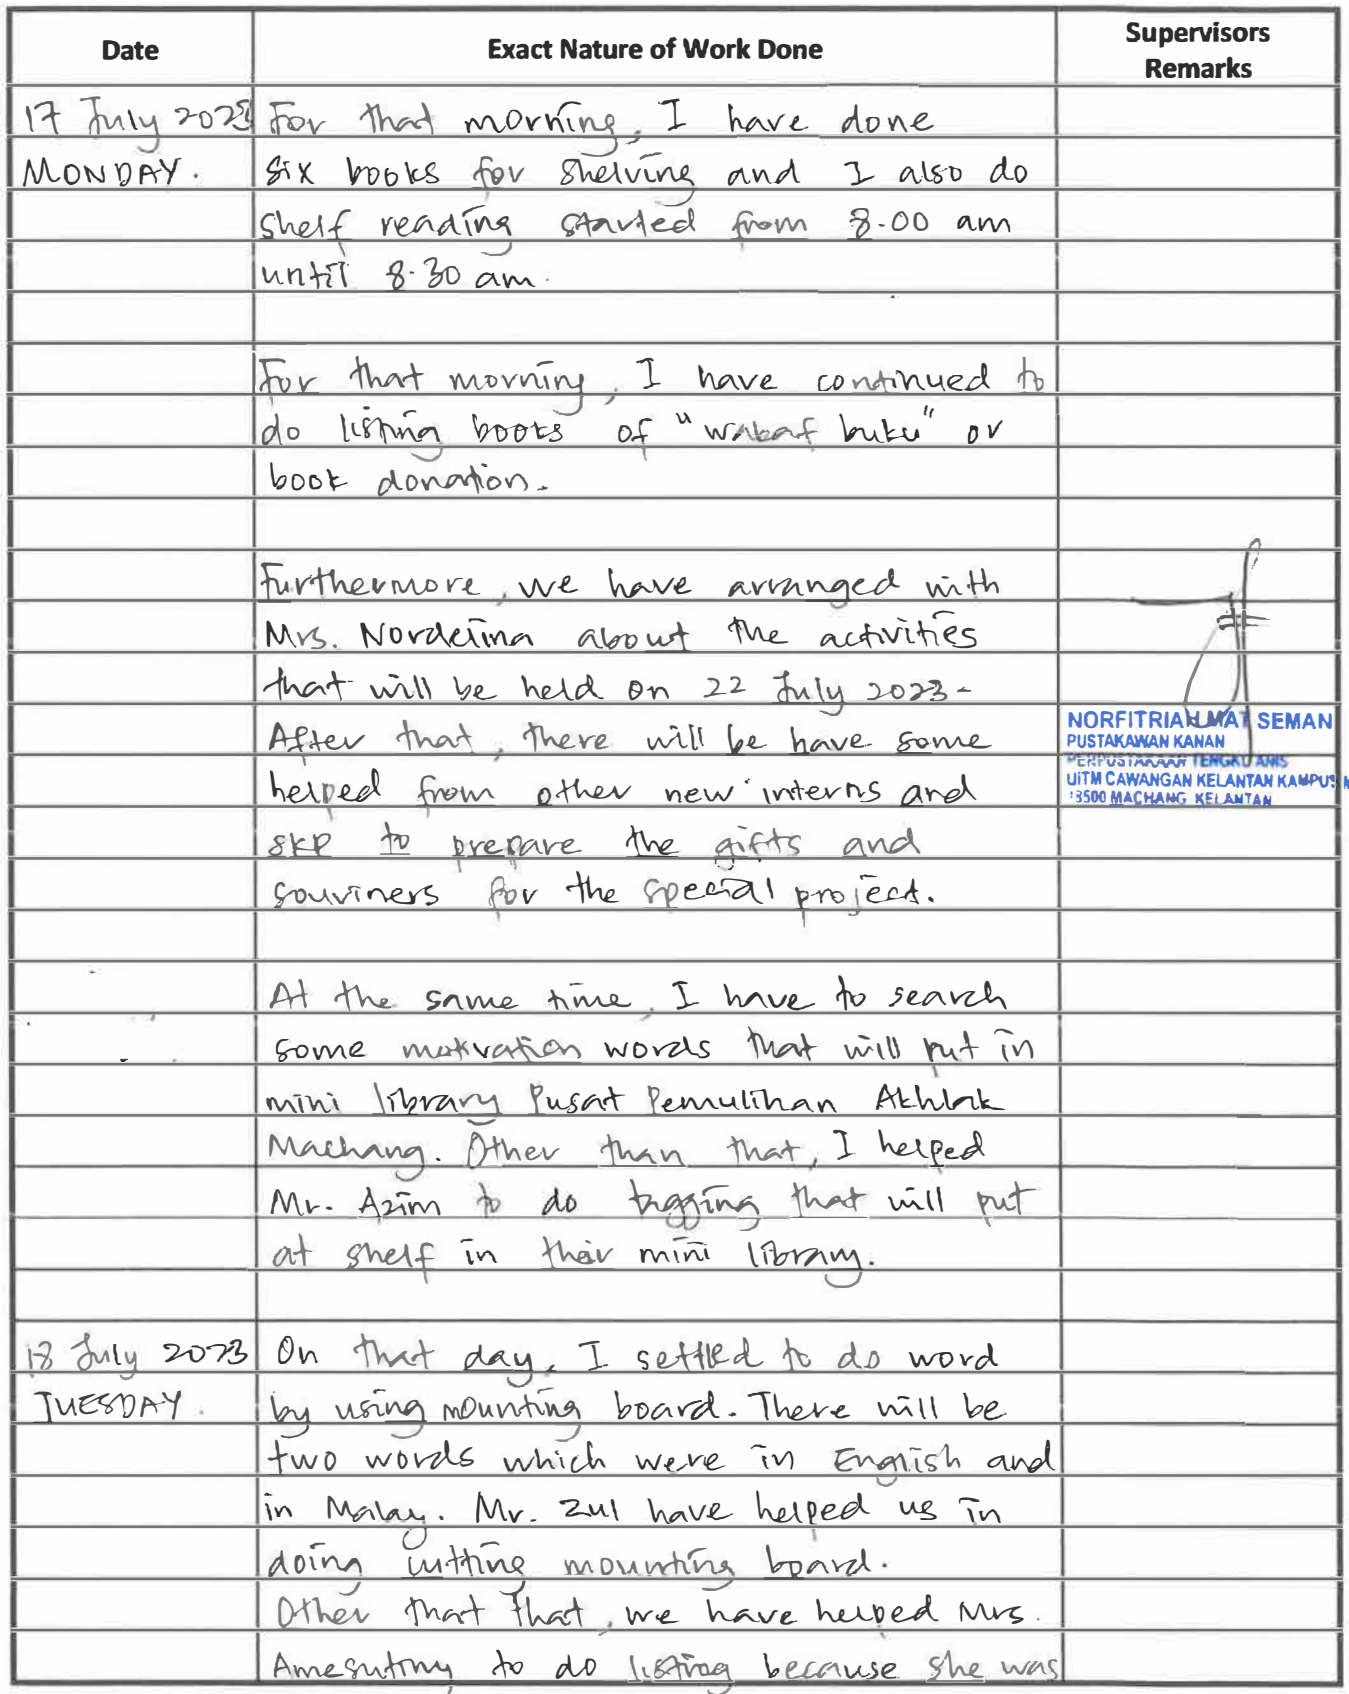 Date Exact Nature of Work Done Supervisors Remarks
17 July 2023 For that morning, I have done
MONDAY. six books for shelving and I also do
shelf reading started from 8.00 am
until 8.30 am.
For that morning, I have continued to
do listing books of "wakaf buku" or
book donation.
Furthermore, we have arranged with
Mrs. Nordelina about the activities
that will be held on 22 July 2023-
After that, there will be have some
helped from other new interns and
SKP to prepare the gifts and
souviners for the special project.
NORFITRIAH MAT SEMAN
PUSTAKAWAN KANAN
PERPUSTAKAAN TENGKU ANIS
UiTM CAWANGAN KELANTAN KAMPUS M
18500 MACHANG KELANTAN
At the same time, I have to search
some motivation words that will put in
mini library Pusat Pemulihan Akhlak
Machang. Other than that, I helped
Mr. Azim to do tagging that will put
at shelf in their mini library.
18 July 2023 On that day, I settled to do word
TUESDAY. by using mounting board. There will be
two words which were in English and
in Malay. Mr. Zul have helped us in
doing cutting mounting board.
Other that that, we have helped Mrs.
to do listing because she was